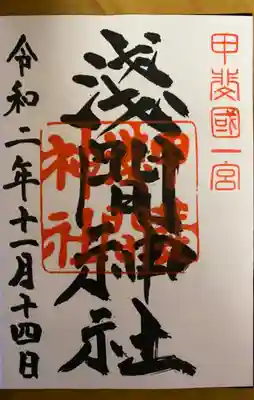 甲斐國一宮
淺間神社
淺間神社
令和二年十一月十四日